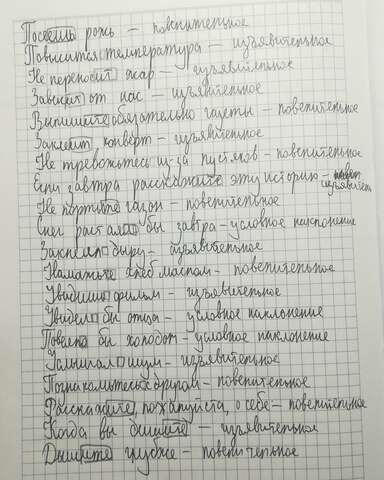 Посеешь рожь – повелительное
Повысится температура – изъявительное
Не переносит жар – изъявительное
Зависит от нас – изъявительное
Выпишите обязательно газеты – повелительное
Заклеит конверт – изъявительное
Не тревожьтесь из-за пустяков – повелительное
Если завтра расскажите эту историю – изъявител
Не портите газон – повелительное
Снег растаял бы завтра – условное наклонение
дыру – изъявительное
Намажьте хлеб маслом – повелительное
фильм – изъявительное
Увидел бы отца – условное наклонение
Повеял бы холодом – условное наклонение
Услышал шум – изъявительное
Познакомьтесь с другом – повелительное
Расскажите, пожалуйста, о себе – повелительное
Когда вы дышите – изъявительное
Дышите глубже – повелительное